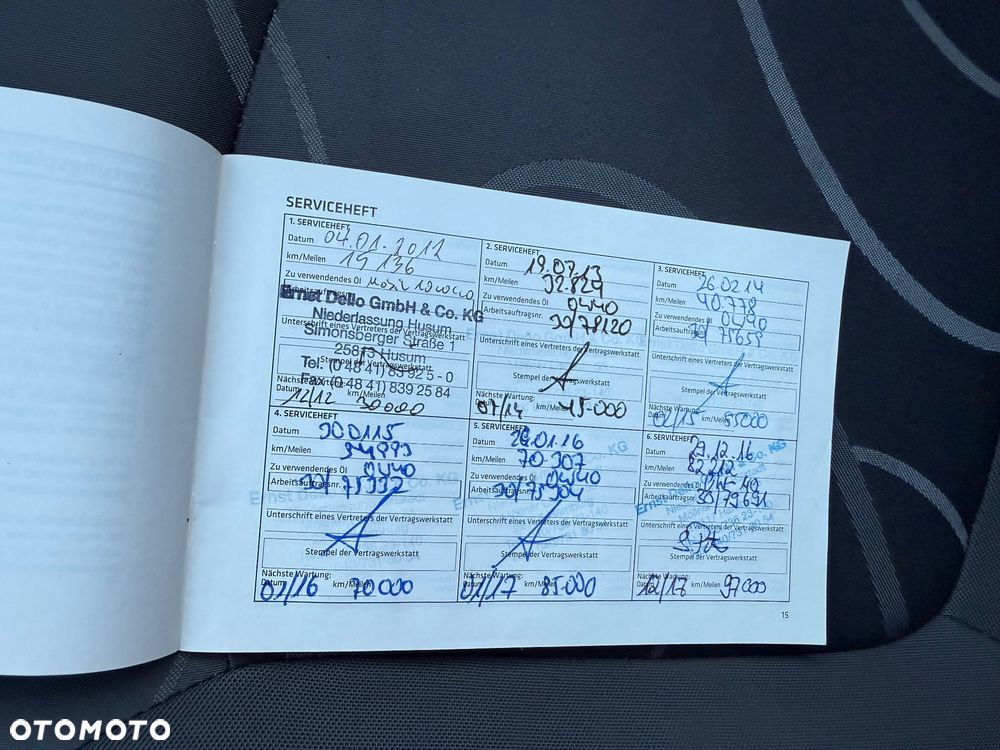 SERVICEHEFT
1. SERVICEHEFT
Datum 04.01.2012
km/Meilen 19 136
Zu verwendendes Öl
Arbeitsauftragsnr.
Ernst Dello GmbH & Co. KG
Niederlassung Husum
Unterschrift eines Vertreters der Vertragswerkstatt
Simonsberger Straße 1
25813 Husum
Stempel der Vertragswerkstatt
Tel: (0 48 41) 83 92 5 - 0
Fax (0 48 41) 839 25 84
Nächste Wartung:
Datum 12/12 km/Meilen 30000
2. SERVICEHEFT
Datum 19.07.13
km/Meilen 32.829
Zu verwendendes Öl 0W40
Arbeitsauftragsnr. 30/78120
Unterschrift eines Vertreters der Vertragswerkstatt
Stempel der Vertragswerkstatt
Nächste Wartung:
Datum 07/14 km/Meilen 45-000
3. SERVICEHEFT
Datum 26.02.14
km/Meilen 40.778
Zu verwendendes Öl 0W40
Arbeitsauftragsnr. 30/75659
Unterschrift eines Vertreters der Vertragswerkstatt
Stempel der Vertragswerkstatt
Nächste Wartung:
Datum 02/15 km/Meilen 55000
4. SERVICEHEFT
Datum 300115
km/Meilen 54973
Zu verwendendes Öl 0W40
Arbeitsauftragsnr. 30/75332
Unterschrift eines Vertreters der Vertragswerkstatt
Stempel der Vertragswerkstatt
Nächste Wartung:
Datum 02/16 km/Meilen 70000
5. SERVICEHEFT
Datum 26.01.16
km/Meilen 70307
Zu verwendendes Öl 0W40
Arbeitsauftragsnr. 30/75304
Unterschrift eines Vertreters der Vertragswerkstatt
Stempel der Vertragswerkstatt
Nächste Wartung:
Datum 01/17 km/Meilen 85000
6. SERVICEHEFT
Datum 29.12.16
km/Meilen 82212
Zu verwendendes Öl
Arbeitsauftragsnr. 30/79691
Ernst Dello
Unterschrift eines Vertreters der Vertragswerkstatt
Stempel der Vertragswerkstatt
Nächste Wartung:
Datum 12/18 km/Meilen 97000
15
OTOMOTO